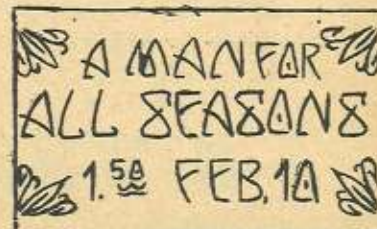 A MAN FOR
ALL SEASONS
1.50 FEB. 10